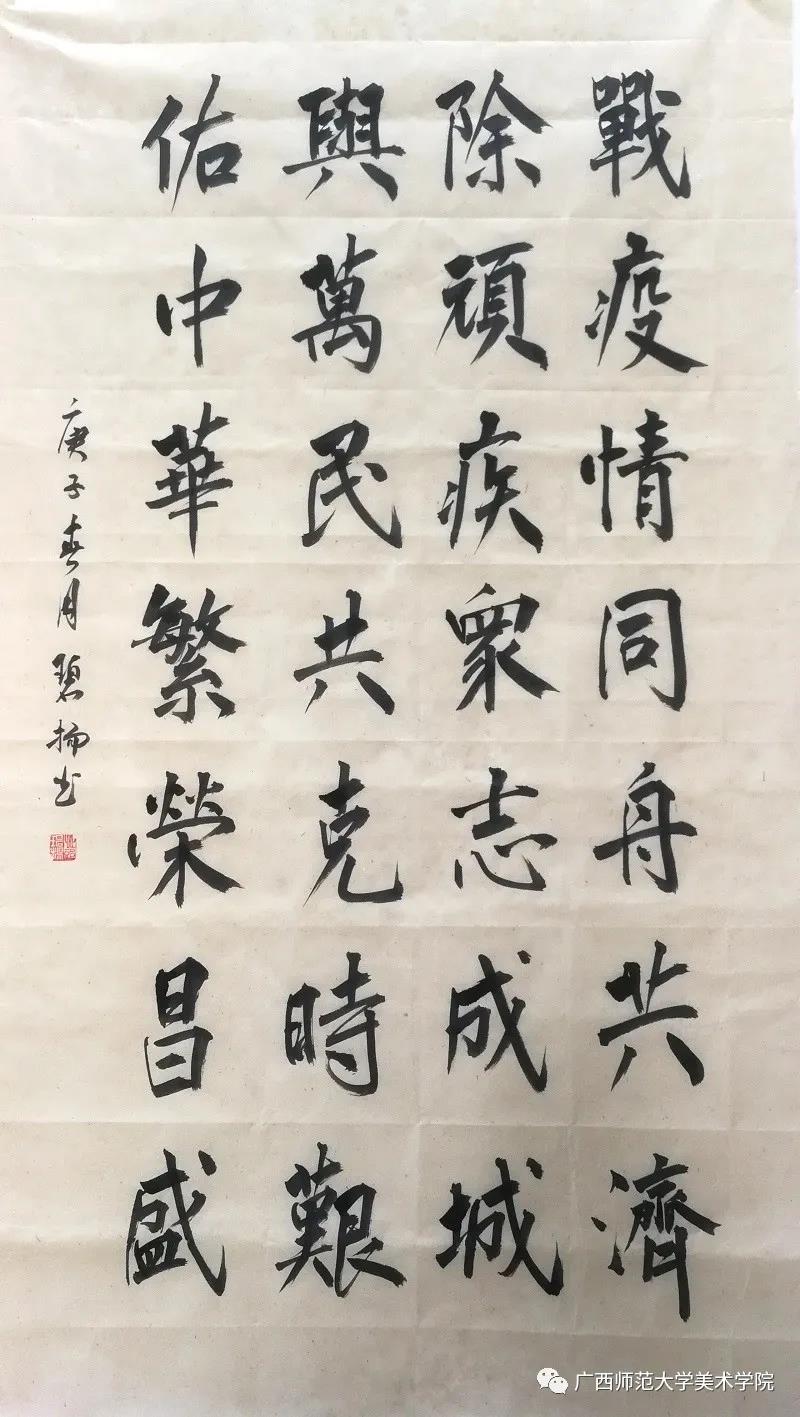 戰疫情同舟共濟
除頑疾衆志成城
與萬民共克時艱
佑中華繁榮昌盛
庚子春月碧揚书
广西师范大学美术学院